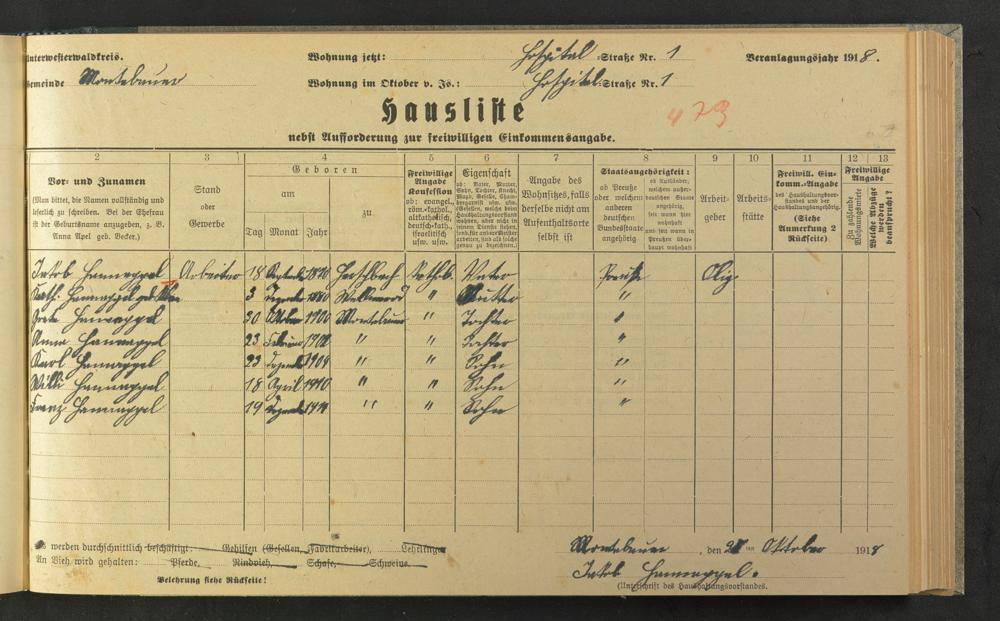 Unterwesterwaldkreis. Wohnung jetzt: Hospital Straße Nr. 1 Veranlagungsjahr 1918.
Gemeinde Montabaur Wohnung im Oktober v. Js.: Hospital Straße Nr. 1
Hausliste 473
nebst Aufforderung zur freiwilligen Einkommensangabe.
2 3 4 5 6 7 8 9 10 11 12 13
Vor- und Zunamen
(Man bittet, die Namen vollständig und
leserlich zu schreiben. Bei der Ehefrau
ist der Geburtsname anzugeben, z. B.
Anna Apel geb. Becker.)
Stand
oder
Gewerbe
Geboren
am
zu
Tag Monat Jahr
Freiwillige
Angabe
Konfession
ob: evangel.,
röm.-kathol.,
altkatholisch,
deutsch-kath.,
israelitisch
usw. usw.
Eigenschaft
ob: Vater, Mutter,
Sohn, Tochter, Knecht,
Magd, Geselle,
Angabe des
Wohnsitzes, falls
derselbe nicht am
Aufenthaltsorte
selbst ist
Staatsangehörigkeit:
ob Preuße
oder welchem
anderen
deutschen
Bundesstaate
angehörig
ob Ausländer,
welchem außer-
deutschen Staate
angehörig,
seit wann hier
wohnhaft
und seit wann in
Preußen über-
haupt wohnhaft
Arbeit-
geber
Arbeits-
stätte
Freiwill. Ein-
komm.-Angabe
des Haushaltungsvor-
standes und der
Haushaltungsangehörig.
(Siehe
Anmerkung 2
Rückseite)
Freiwillige
Angabe
Zu zahlende
Wohnungsmiete
Welche Abzüge
werden
beansprucht?
Jakob Hannappel Arbeiter 18 Herschbach Kathol. Vater Preuße
Kath. Hannappel geb. 3 Dezember 1880 " Mutter "
Hannappel 30 Oktober 1900 Montabaur " Tochter "
Anna Hannappel 23 Februar " " Tochter "
Karl Hannappel 23 Dezember 1904 " " Sohn "
Willi Hannappel 18 April 1910 " " Sohn "
Franz Hannappel 19 Dezember " " Sohn "
Es werden durchschnittlich beschäftigt: Gehilfen (Gesellen, Fabrikarbeiter), Lehrlinge
An Vieh wird gehalten: Pferde, Rindvieh, Schafe, Schweine.
Belehrung siehe Rückseite!
Montabaur, den Oktober 1918
Jakob Hannappel.
(Unterschrift des Haushaltungsvorstandes.